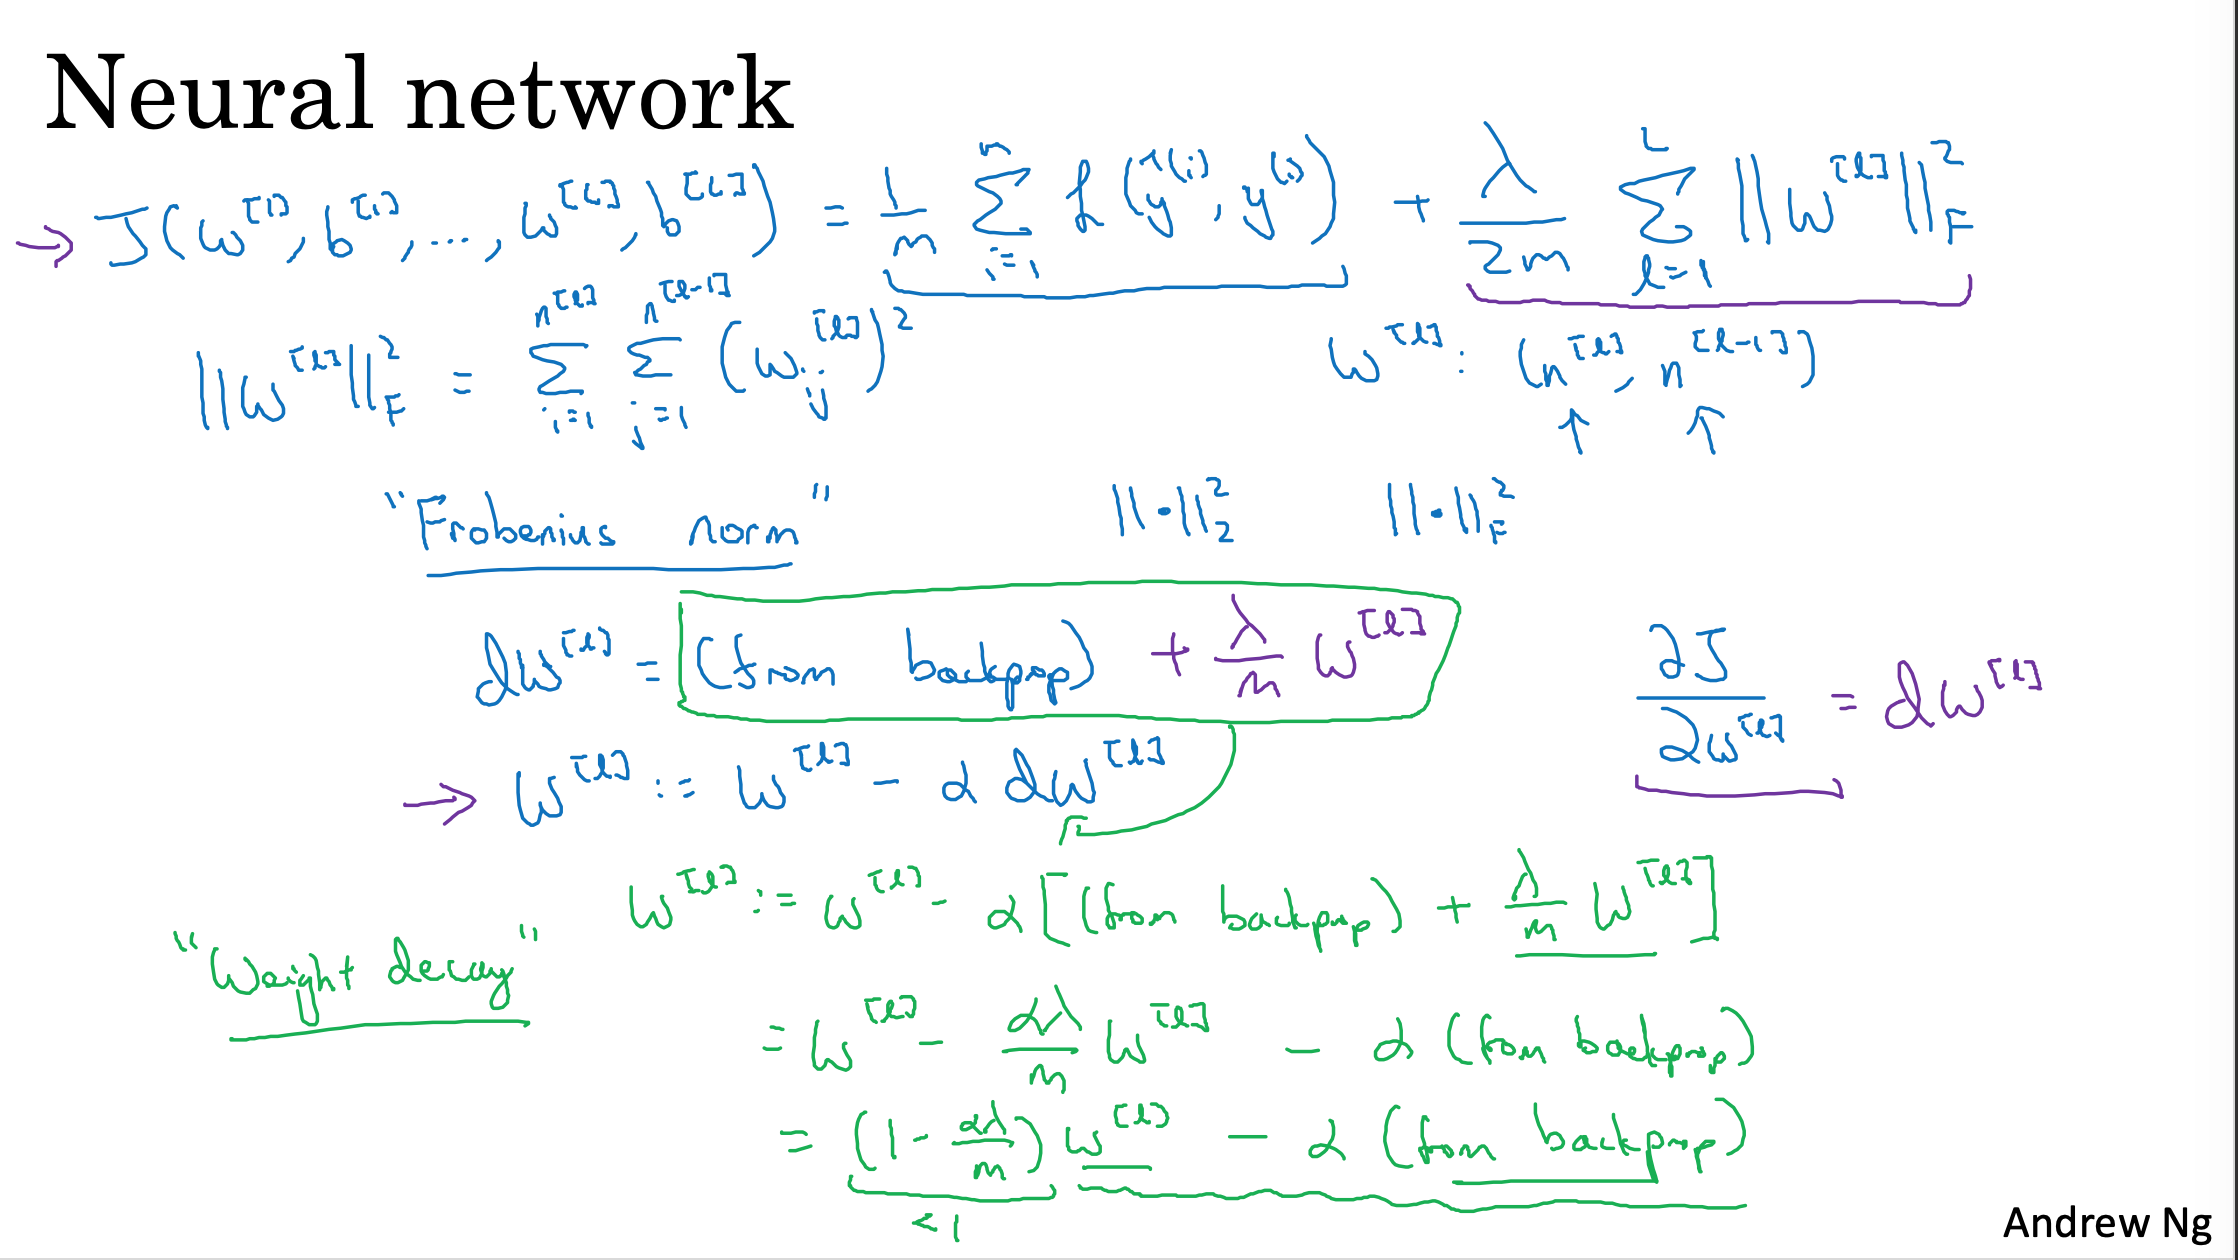 Neural network
→ J(w^[1], b^[1], ..., w^[L], b^[L]) = 1/m Σ_{i=1}^{m} ℒ(ŷ^(i), y^(i)) + λ/2m Σ_{l=1}^{L} ||w^[l]||_F^2
||w^[l]||_F^2 = Σ_{i=1}^{n^[l]} Σ_{j=1}^{n^[l-1]} (w_ij^[l])^2 w^[l] : (n^[l], n^[l-1])
↑ ↑
"Frobenius norm" ||·||_2^2 ||·||_F^2
dw^[l] = (from backprop) + λ/m w^[l] ∂J/∂w^[l] = dw^[l]
→ w^[l] := w^[l] - α dw^[l]
"Weight decay" w^[l] := w^[l] - α[(from backprop) + λ/m w^[l]]
= w^[l] - αλ/m w^[l] - α (from backprop)
= (1 - αλ/m) w^[l] - α (from backprop)
< 1
Andrew Ng